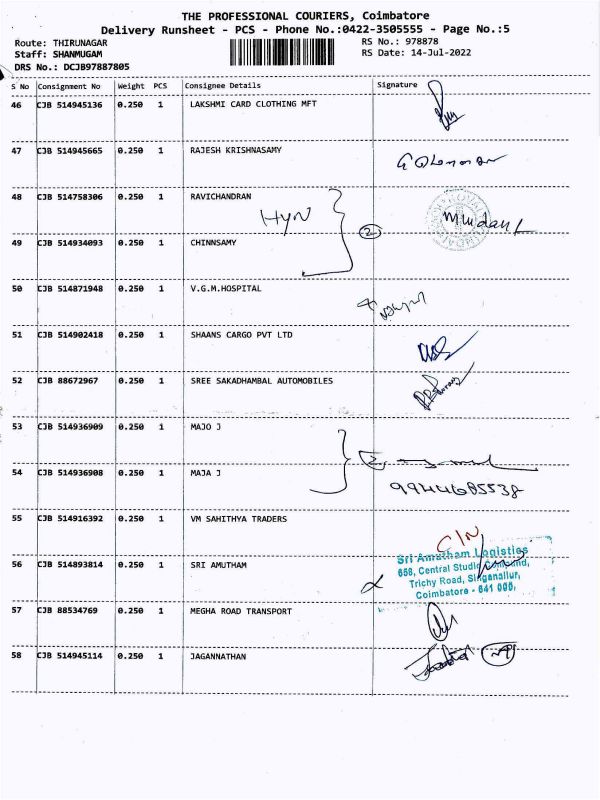 THE PROFESSIONAL COURIERS, Coimbatore
Delivery Runsheet - PCS - Phone No.:0422-3505555 - Page No.:5
Route: THIRUNAGAR
Staff: SHANMUGAM
DRS No.: DCJB97887805
RS No.: 978878
RS Date: 14-Jul-2022
S No Consignment No Weight PCS Consignee Details Signature
46 CJB 514945136 0.250 1 LAKSHMI CARD CLOTHING MFT
47 CJB 514945665 0.250 1 RAJESH KRISHNASAMY
48 CJB 514758306 0.250 1 RAVICHANDRAN
2
49 CJB 514934093 0.250 1 CHINNSAMY
50 CJB 514871948 0.250 1 V.G.M.HOSPITAL
51 CJB 514902418 0.250 1 SHAANS CARGO PVT LTD
52 CJB 88672967 0.250 1 SREE SAKADHAMBAL AUTOMOBILES
53 CJB 514936909 0.250 1 MAJO J
54 CJB 514936908 0.250 1 MAJA J
9944685538
55 CJB 514916392 0.250 1 VM SAHITHYA TRADERS
C/N
56 CJB 514893814 0.250 1 SRI AMUTHAM
Sri Amutham Logistics
658, Central Studio Compound,
Trichy Road, Singanallur,
Coimbatore - 641 005.
57 CJB 88534769 0.250 1 MEGHA ROAD TRANSPORT
58 CJB 514945114 0.250 1 JAGANNATHAN